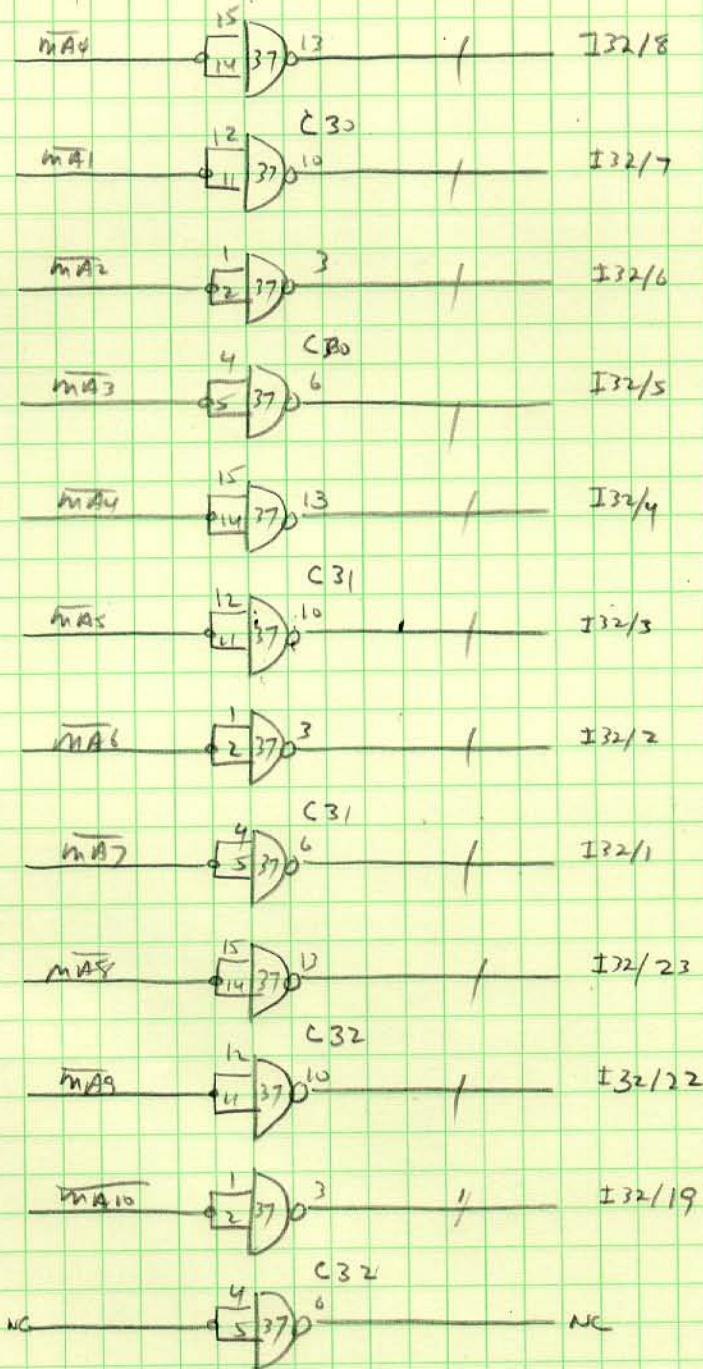 15
M̅A̅4̅ 14 37 13 I32/8
C30
12
M̅A̅1̅ 11 37 10 I32/7
1
M̅A̅2̅ 2 37 3 I32/6
C30
4
M̅A̅3̅ 5 37 6 I32/5
15
M̅A̅4̅ 14 37 13 I32/4
C31
12
M̅A̅5̅ 11 37 10 I32/3
1
M̅A̅6̅ 2 37 3 I32/2
C31
4
M̅A̅7̅ 5 37 6 I32/1
15
M̅A̅8̅ 14 37 13 I32/23
C32
12
M̅A̅9̅ 11 37 10 I32/22
1
M̅A̅1̅0̅ 2 37 3 I32/19
C32
4
NC 5 37 6 NC